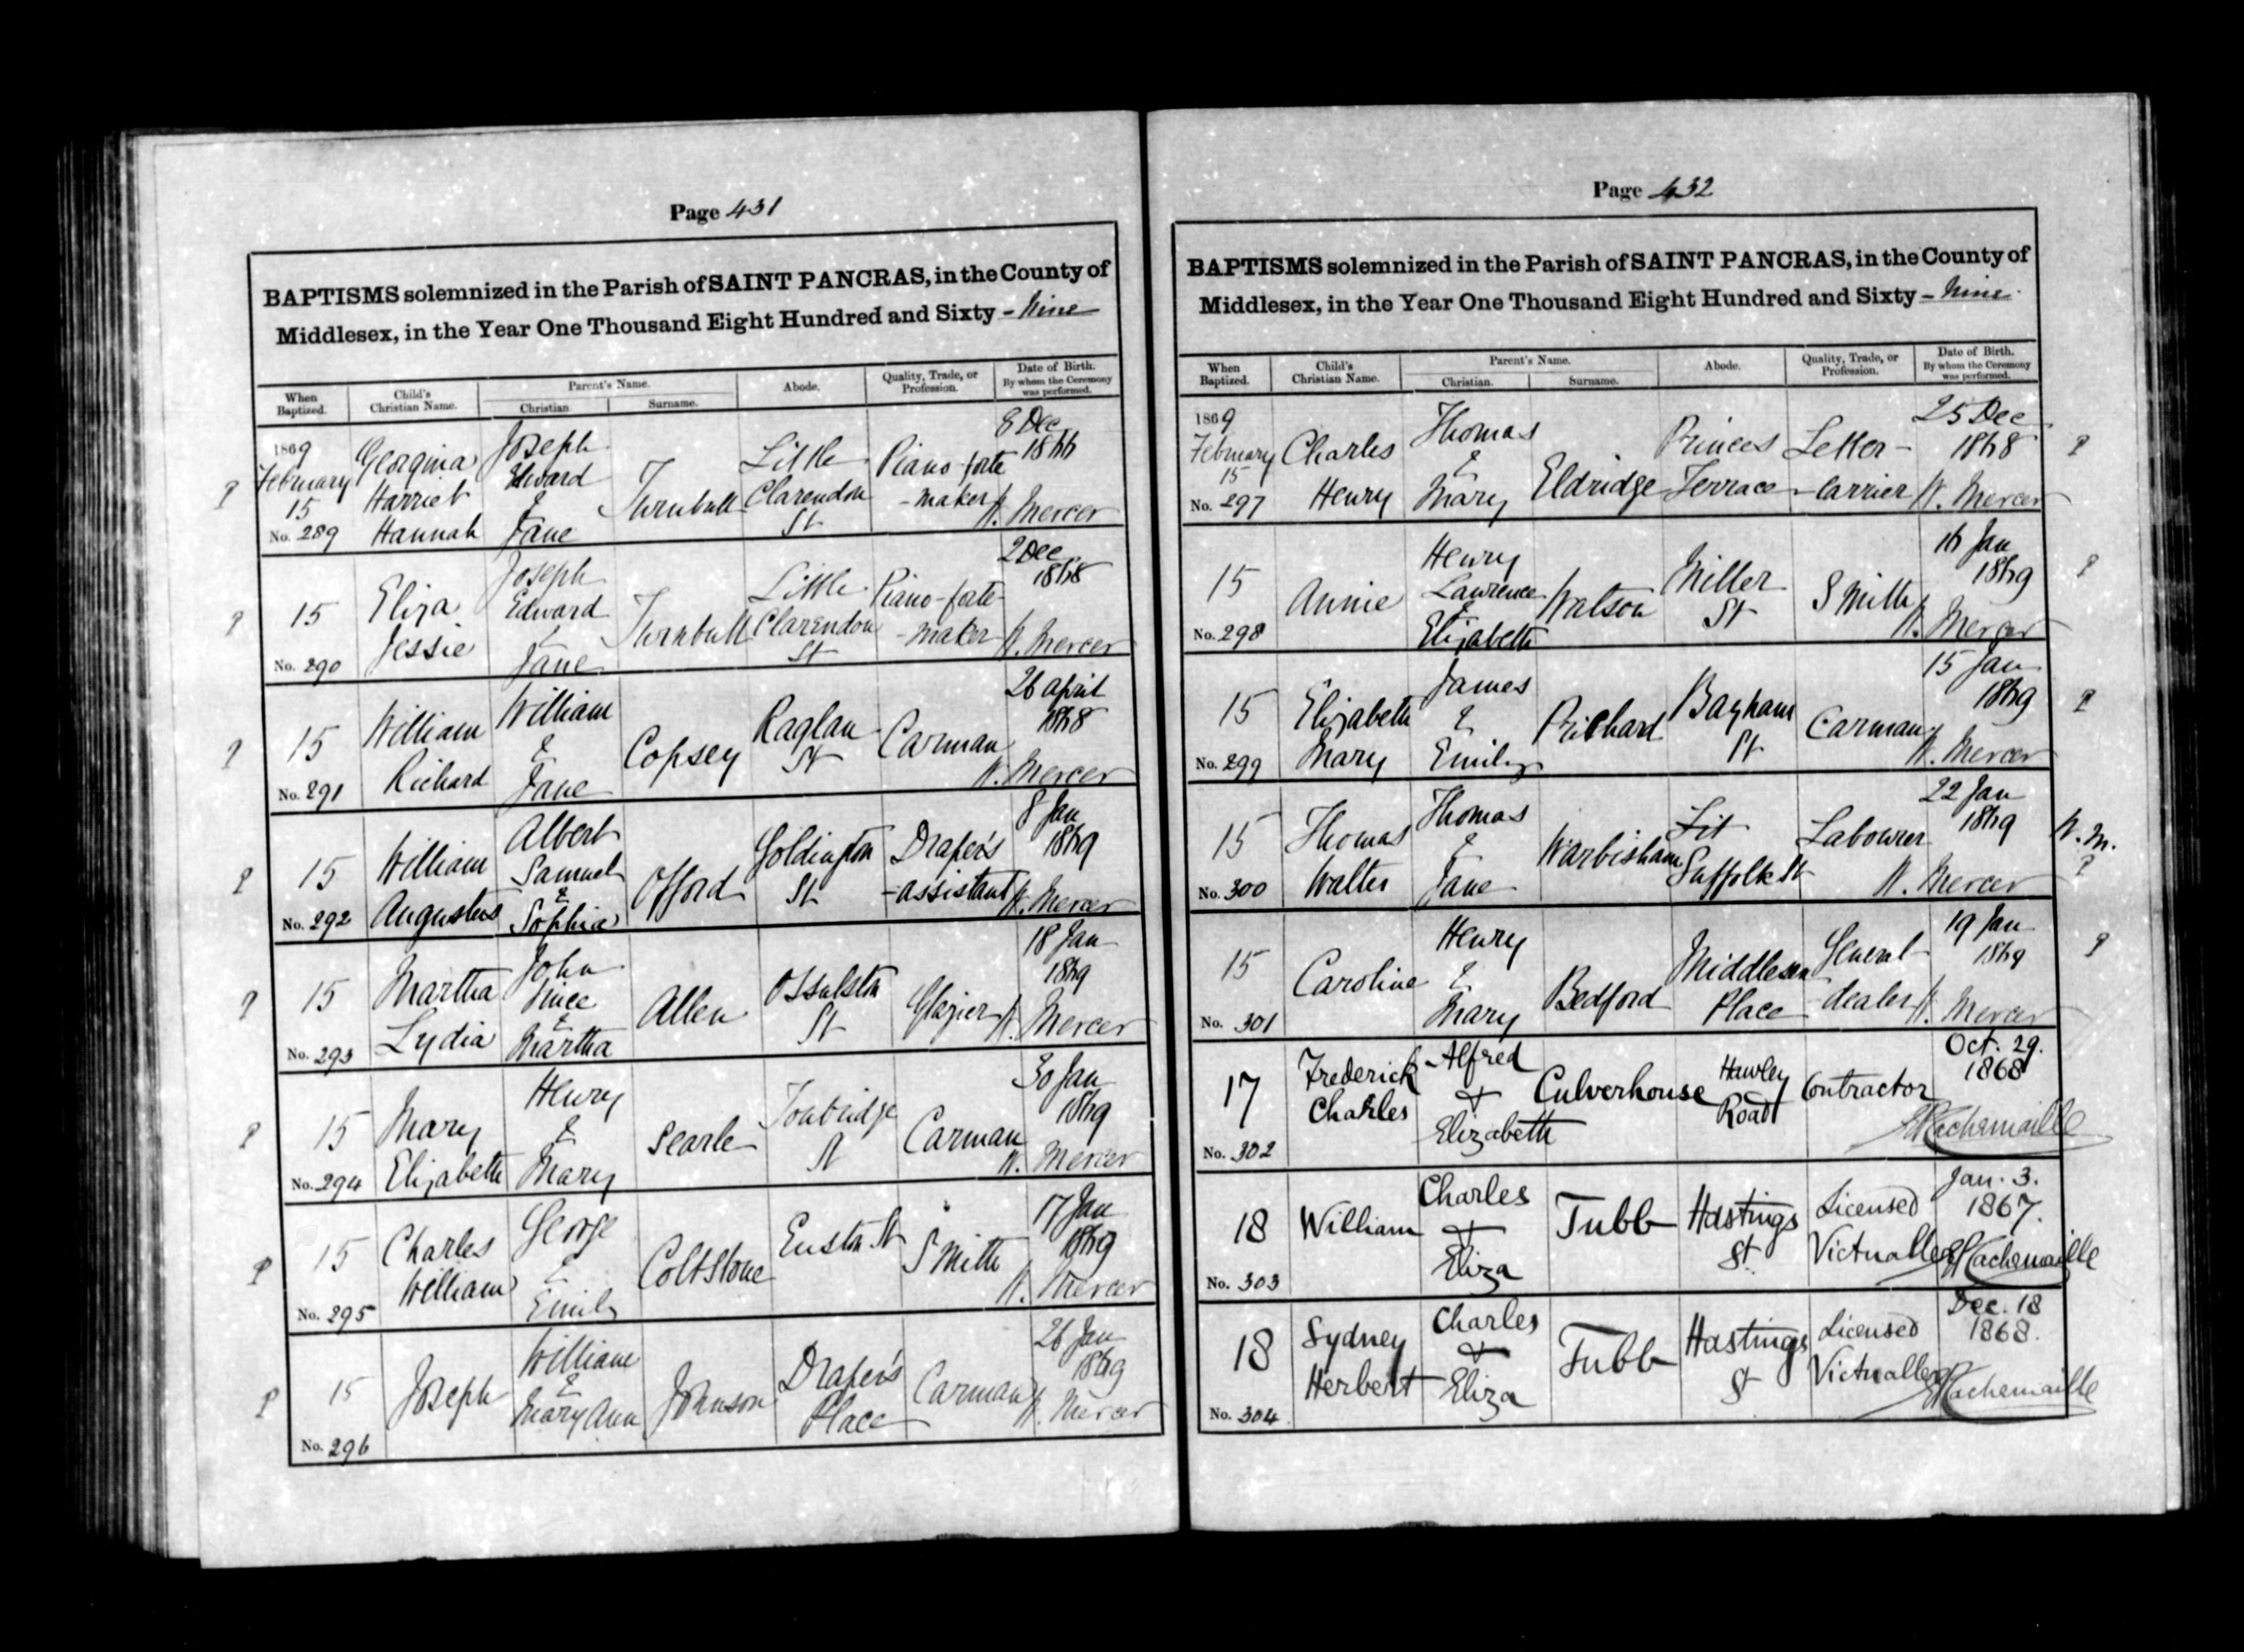 Page 431
BAPTISMS solemnized in the Parish of SAINT PANCRAS, in the County of
Middlesex, in the Year One Thousand Eight Hundred and Sixty - Nine
When Baptized.
Child's Christian Name.
Parent's Name.
Christian.
Surname.
Abode.
Quality, Trade, or Profession.
Date of Birth.
By whom the Ceremony was performed.
1869 February 15 No. 289
Georgina Harriet Hannah
Joseph Edward & Jane
Turnbull
Little Clarendon St
Piano-forte -maker
8 Dec 1866
W. Mercer
15 No. 290
Eliza Jessie
Joseph Edward & Jane
Turnbull
Little Clarendon St
Piano-forte- -maker
2 Dec 1868
W. Mercer
15 No. 291
William Richard
William & Jane
Copsey
Raglan St
Carman
26 April 1868
W. Mercer
15 No. 292
William Augustus
Albert Samuel & Sophia
Offord
Goldington St
Draper's -assistant
8 Jan 1869
W. Mercer
15 No. 293
Martha Lydia
John Vince & Martha
Allen
Ossulston St
Glazier
18 Jan 1869
W. Mercer
15 No. 294
Mary Elizabeth
Henry & Mary
Searle
Tonbridge St
Carman
30 Jan 1869
W. Mercer
15 No. 295
Charles William
George & Emily
Coltstone
Euston St
Smith
17 Jan 1869
W. Mercer
15 No. 296
Joseph
William & Mary Ann
Johnson
Draper's Place
Carman
26 Jan 1869
W. Mercer
Page 432
BAPTISMS solemnized in the Parish of SAINT PANCRAS, in the County of
Middlesex, in the Year One Thousand Eight Hundred and Sixty - Nine.
When Baptized.
Child's Christian Name.
Parent's Name.
Christian.
Surname.
Abode.
Quality, Trade, or Profession.
Date of Birth.
By whom the Ceremony was performed.
1869 February 15 No. 297
Charles Henry
Thomas & Mary
Eldridge
Princes Terrace
Letter- -carrier
25 Dec 1868
W. Mercer
15 No. 298
Annie
Henry Lawrence & Elizabeth
Watson
Miller St
Smith
16 Jan 1869
W. Mercer
15 No. 299
Elizabeth Mary
James & Emily
Prichard
Bayham St
Carman
15 Jan 1869
W. Mercer
15 No. 300
Thomas Walter
Thomas & Jane
Warbisham
Lit Suffolk St
Labourer
22 Jan 1869
W. Mercer
W. M.
15 No. 301
Caroline
Henry & Mary
Bedford
Middlesex Place
General- -dealer
19 Jan 1869
W. Mercer
17 No. 302
Frederick Charles
Alfred & Elizabeth
Culverhouse
Hawley Road
Contractor
Oct. 29. 1868
18 No. 303
William
Charles & Eliza
Tubb
Hastings St
Licensed Victualler
Jan. 3. 1867.
18 No. 304
Sydney Herbert
Charles & Eliza
Tubb
Hastings St
Licensed Victualler
Dec. 18 1868.